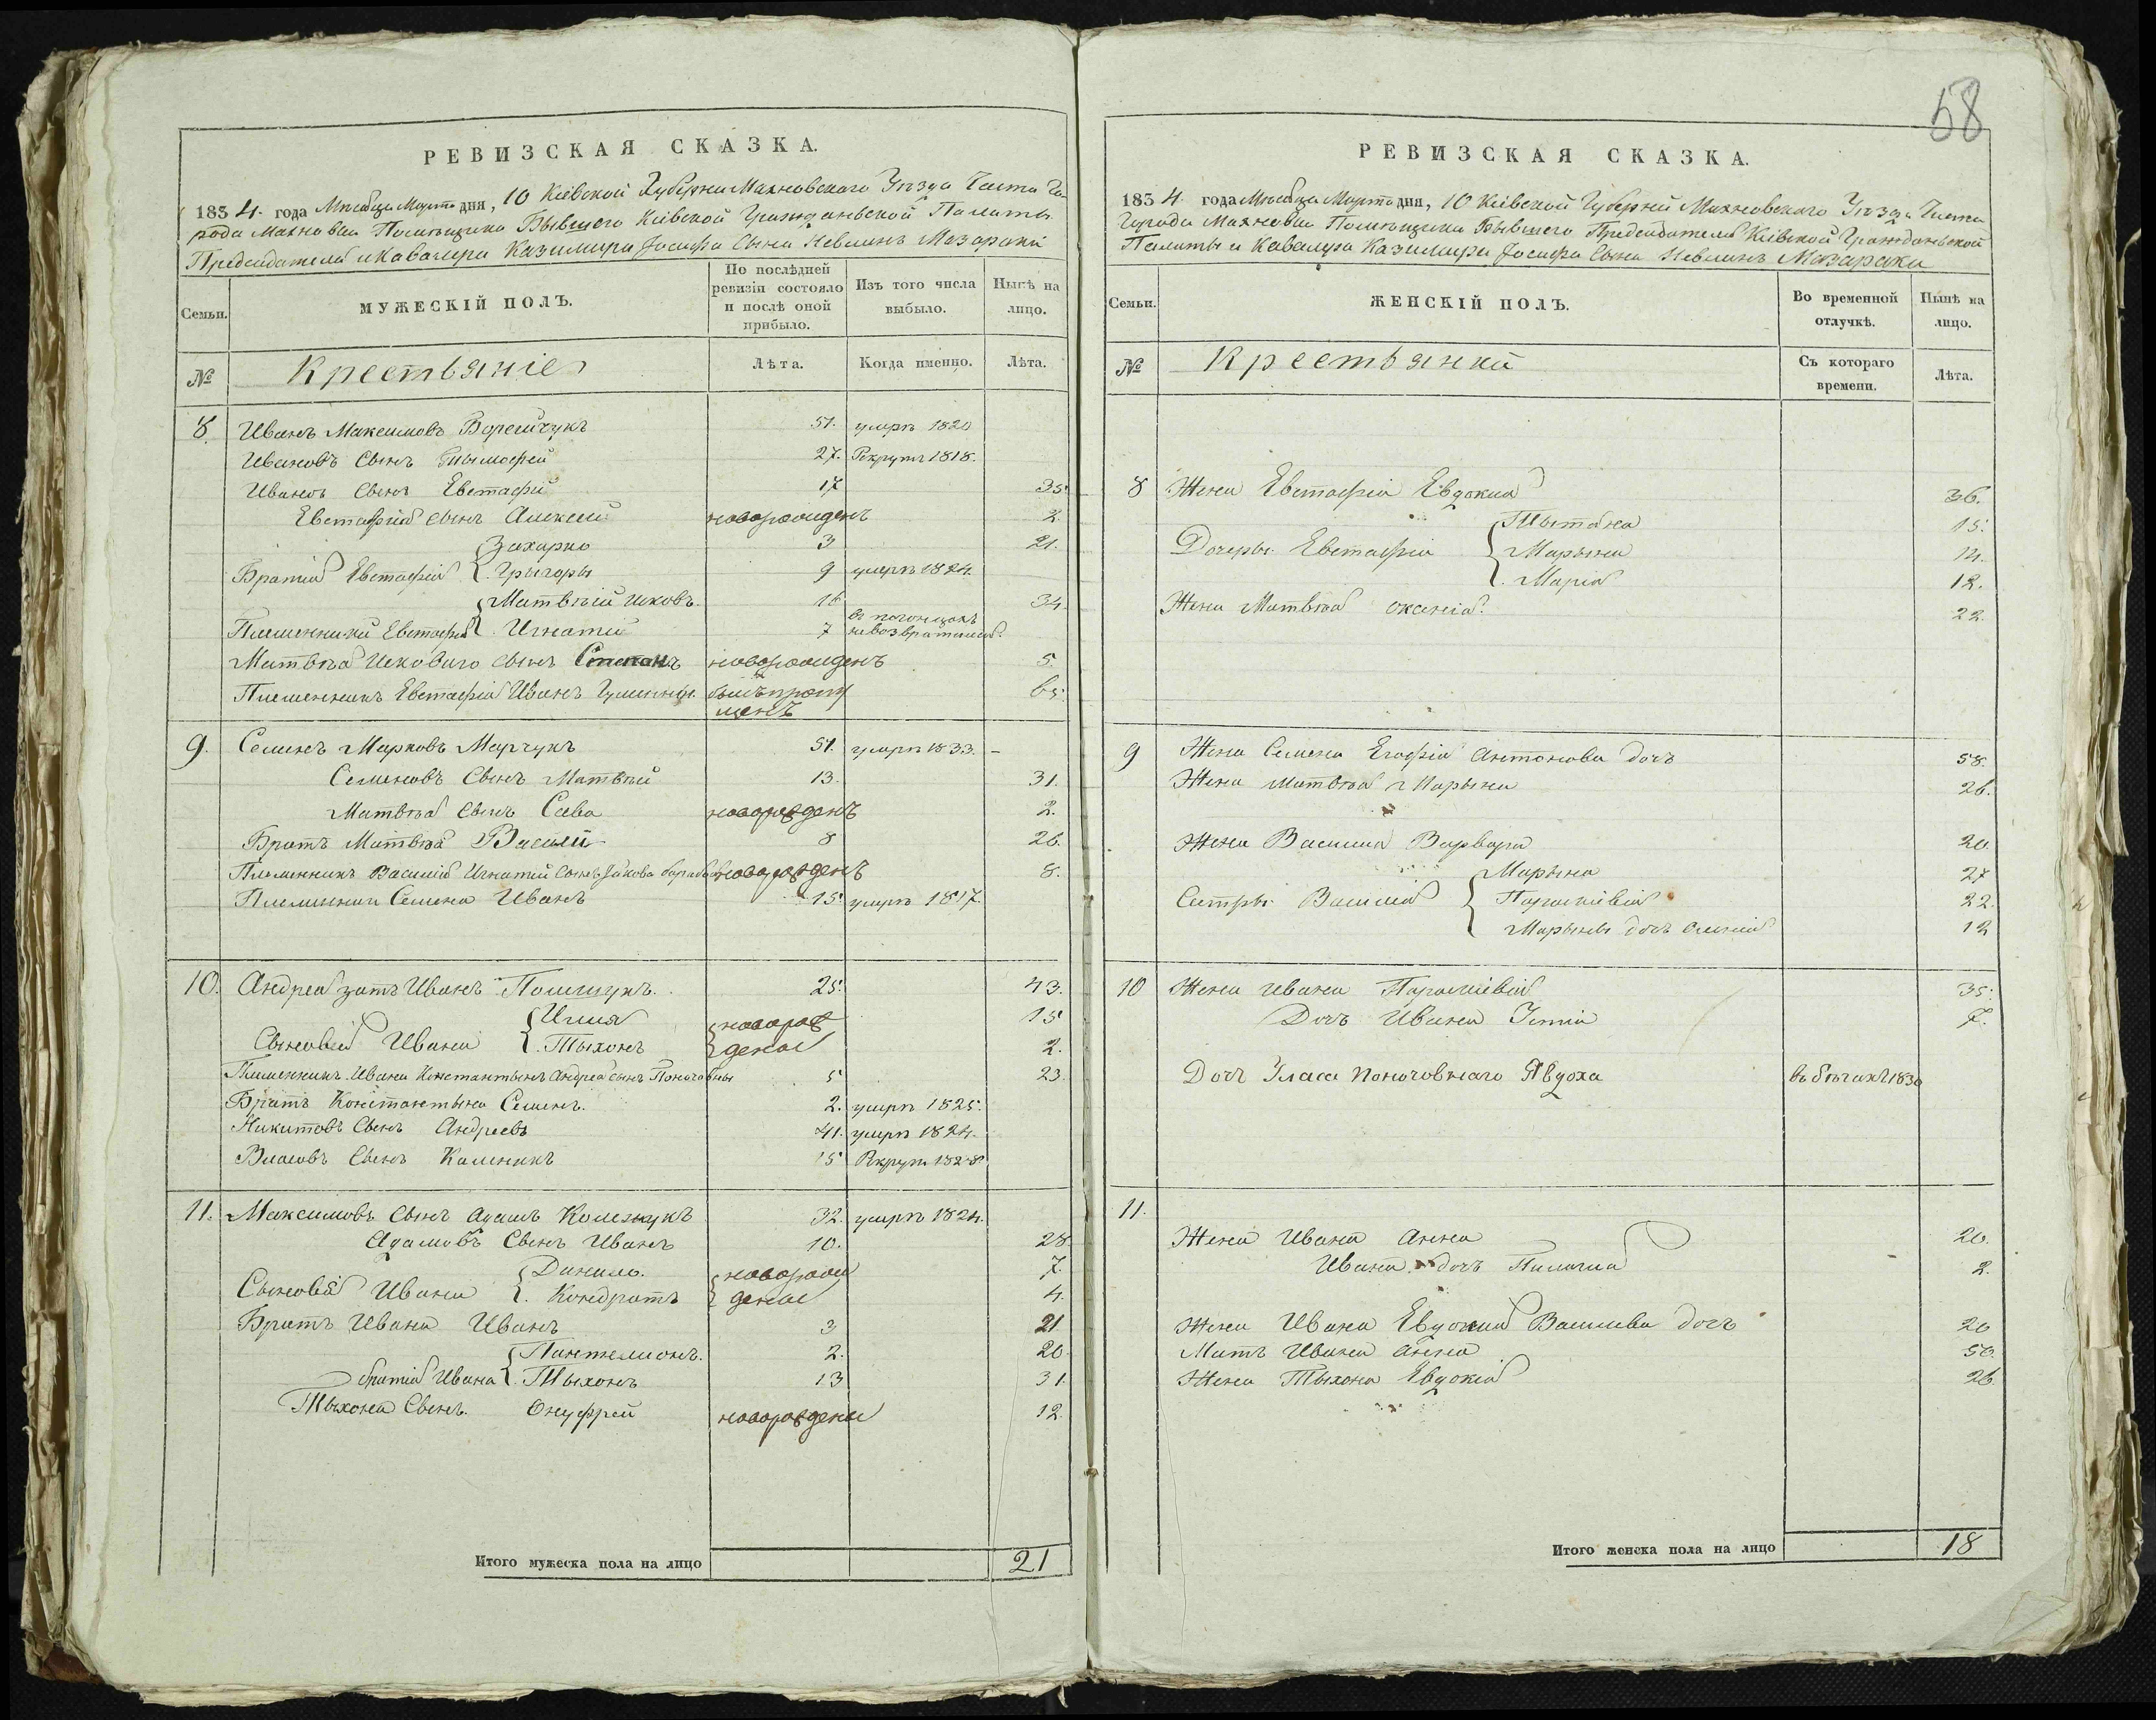 РЕВИЗСКАЯ СКАЗКА.
1834 года Мѣсяца Марта дня, 10 Кіевской Губерніи Махновскаго Уѣзда Части Го
рода Махновки Помѣщика Бывшего Кіевской Гражданьской Палаты
Предсидателя и Кавалера Казимира Іосифа Сына Невлинъ Мазараки
Семьи.
МУЖЕСКІЙ ПОЛЪ.
По послѣдней ревизіи состояло и послѣ оной прибыло.
Изъ того числа выбыло.
Нынѣ на лицо.
№
Крестьяніе
Лѣта.
Когда именно.
Лѣта.
8. Иванъ Максимовъ 51. умръ 1820
Ивановъ Сынъ Тымофей 27. Рекрутъ 1818.
Ивановъ Сынъ Евстафій 17 35.
Евстафія сынъ Алексей новорожденъ 2.
Захарко 3 21.
Братія Евстафія Грыгоры 9 умръ 1824.
Матвѣй Исковъ 16 34.
Племенники Евстафія Игнатій 7 въ погонцахъ невозвратился
Матвѣя Исковаго сынъ Степанъ новорожденъ 5.
Племенникъ Евстафія Иванъ былъ пропу 65.
щенъ
9. Семенъ Марковъ Марчукъ 51. умръ 1833. -
Семеновъ Сынъ Матвѣй 13. 31.
Матвѣя сынъ Сава новорожденъ 2.
Братъ Матвѣя Василій 8 26.
Племенникъ Василія Игнатій сынъ новорожденъ 8.
Племенникъ Семена Иванъ 15 умръ 1817.
10. Андрея зять Иванъ Полищукъ. 25. 43.
Илия новорож 15
Сыновья Ивана Тыхонъ деные 2.
Племенникъ Ивана Константынъ Андрея сынъ 5 23.
Братъ Константына Семенъ. 2. умръ 1825.
Никитовъ Сынъ Андреевъ 41. умръ 1824.
Власовъ Сынъ Каленикъ 15 Рекрутъ 1828
11. Максимовъ сынъ Адамъ 32. умръ 1824.
Адамовъ Сынъ Иванъ 10. 28.
Данило. новорож 7.
Сыновья Ивана Кондратъ деные 4.
Братъ Ивана Иванъ 3 21
Пантелимонъ. 2. 20.
братія Ивана Тыхонъ 13 31.
Тыхона Сынъ. Онуфрей новорожденъ 12.
Итого мужеска пола на лицо 21
58
РЕВИЗСКАЯ СКАЗКА.
1834 года Мѣсяца Марта дня, 10 Кіевской Губерніи Махновскаго Уѣзда Части
Города Махновки Помѣщика Бывшего Предсидателя Кіевской Гражданьской
Палаты и Кавалера Казимира Іосифа Сына Невлинъ Мазараки
Семьи.
ЖЕНСКІЙ ПОЛЪ.
Во временной отлучкѣ.
Нынѣ на лицо.
№
Крестьянки
Съ котораго времени.
Лѣта.
8 Жена Евстафія Евдокия 36.
Тытяна 15.
Дочеры Евстафія Марына 14.
Марія 12.
Жена Матвѣя оксанія 22.
9 Жена Семена Агафія Антонова дочъ 58.
Жена Матвѣя Марына 26.
Жена Василия Варвара 20.
Марына 27
Сестры Василия Параскевія 22.
Марыны дочъ 12
10 Жена Ивана Параскевія 35.
Дочъ Ивана 7.
Дочъ Власа Явдоха въ бѣгахъ 1830
11.
Жена Ивана Анна 20.
Ивана дочъ Палагия 2.
Жена Ивана Евдокия Василева дочъ 20
Мать Ивана Анна 50.
Жена Тыхона Евдокія 26
Итого женска пола на лицо 18